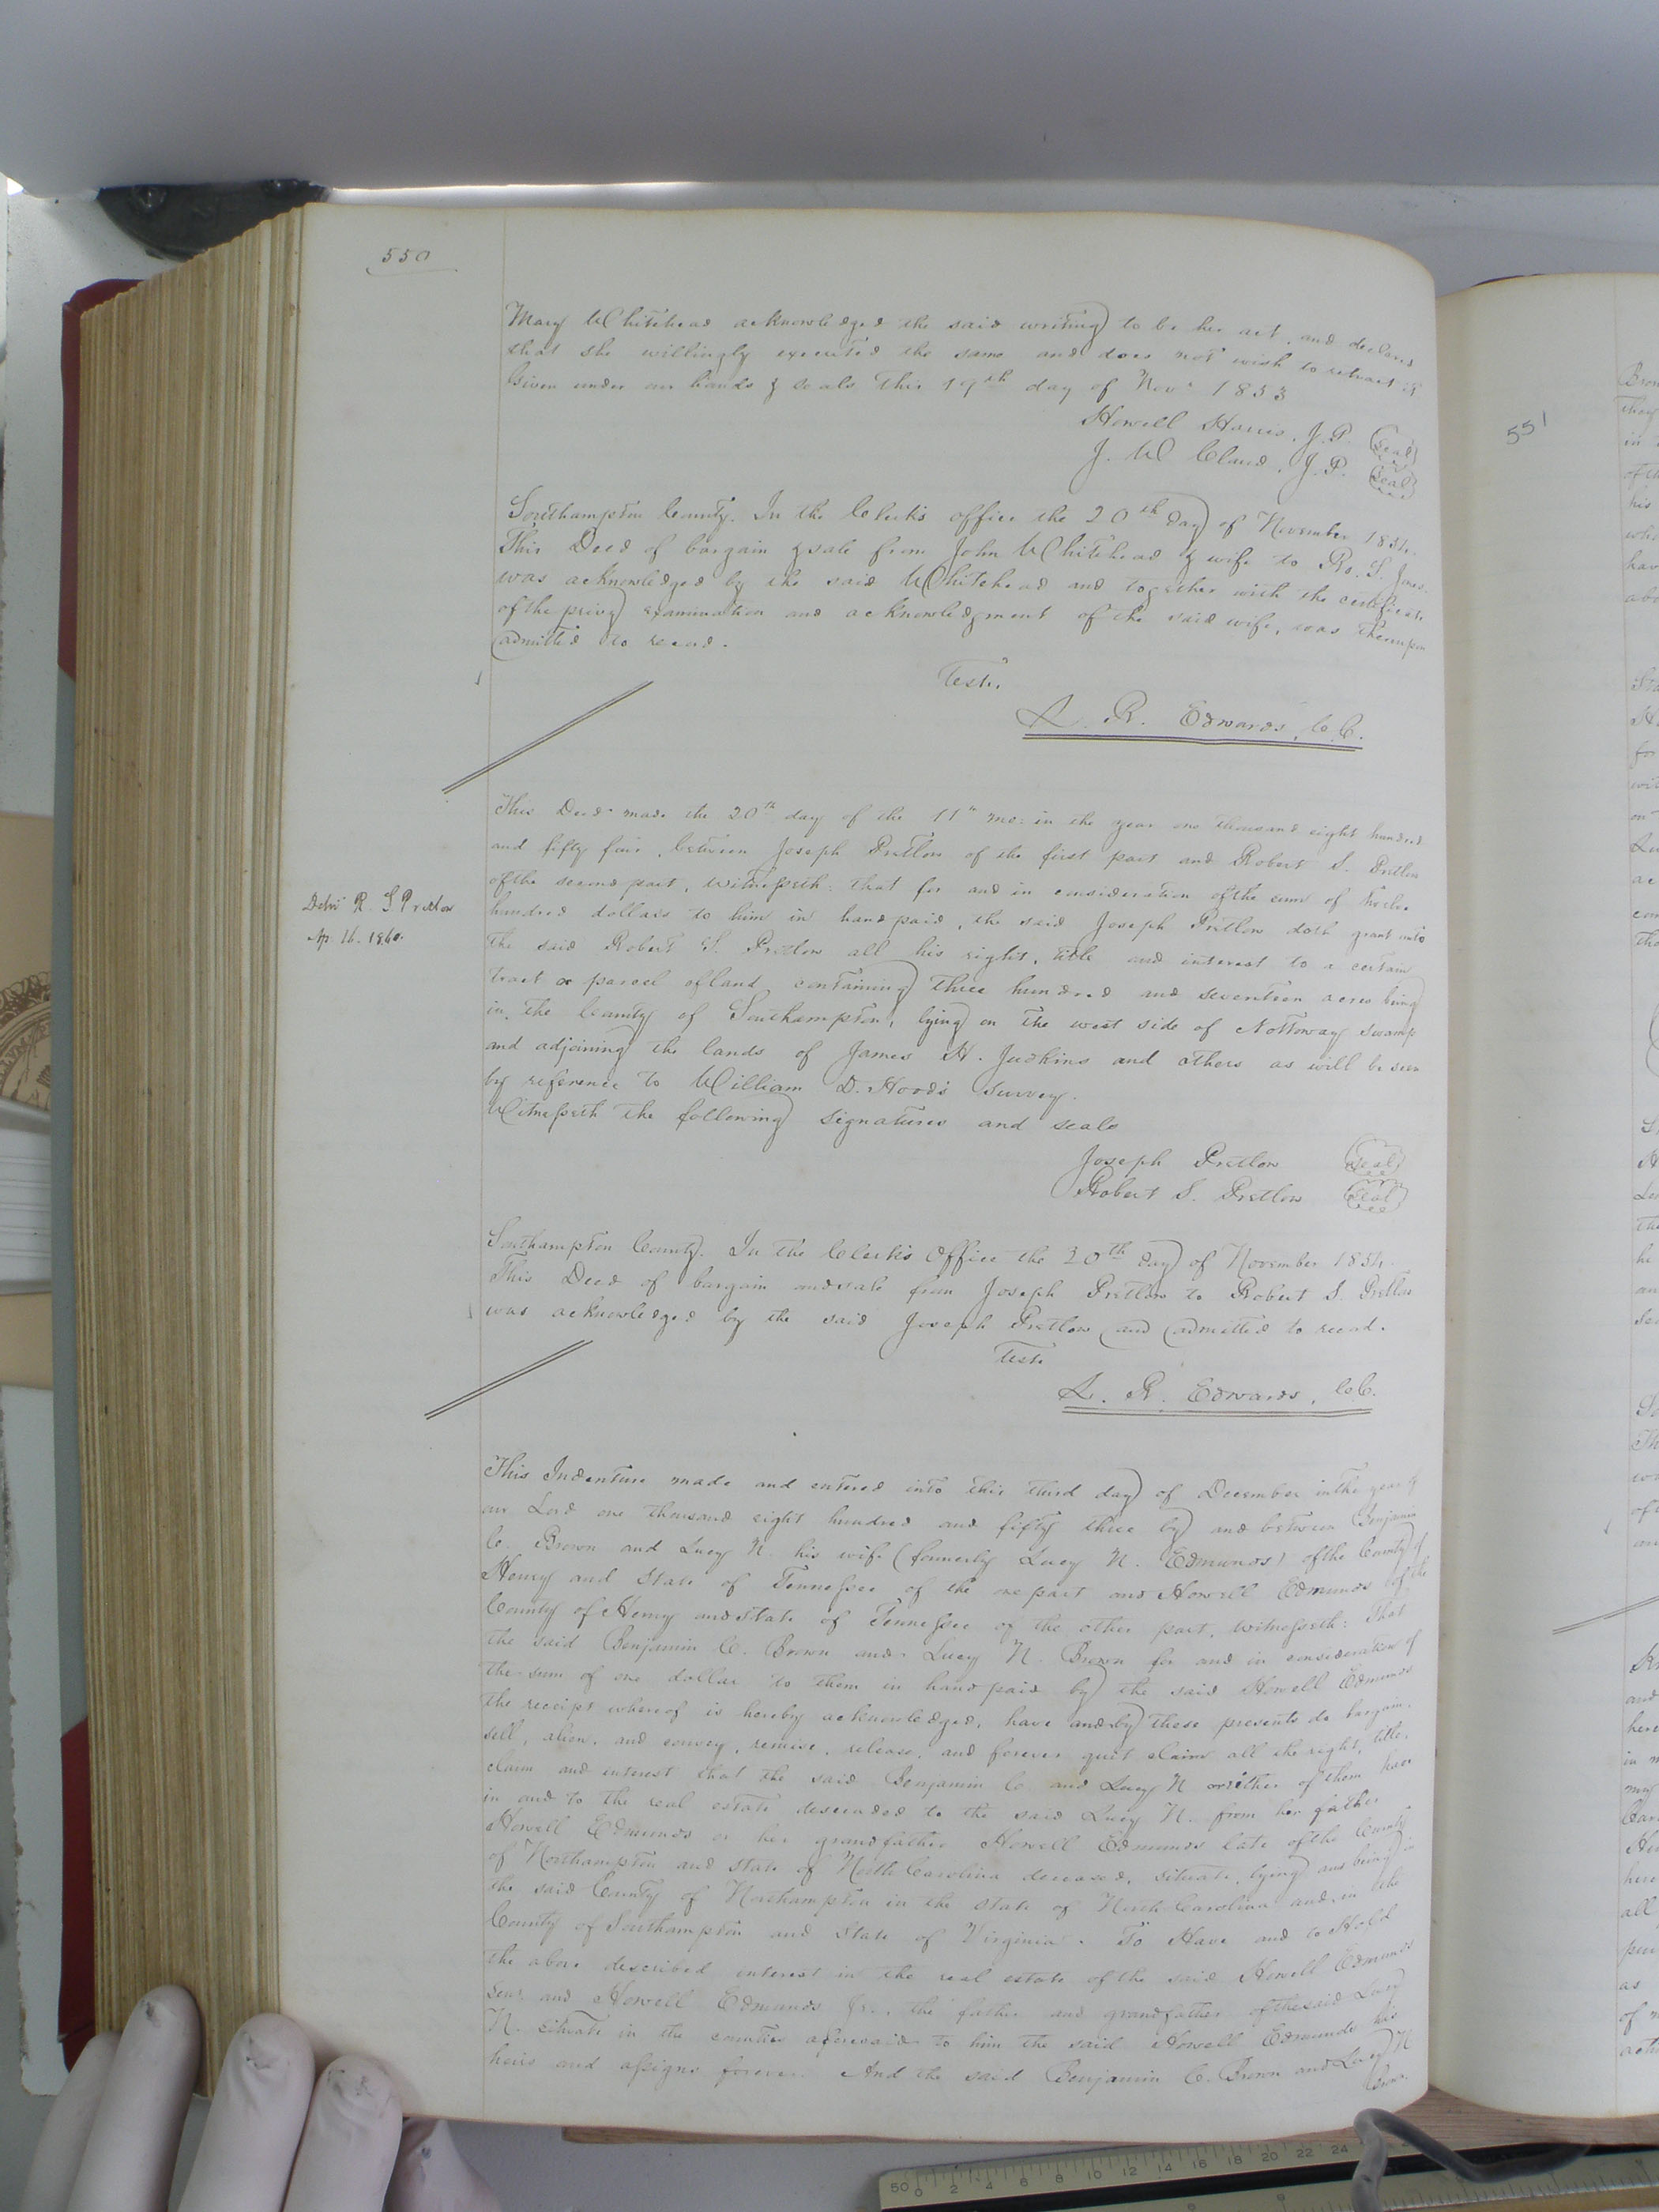 550
Mary Whitehead acknowledged the said writing to be her act, and declared
that she willingly executed the same and does not wish to retract it
Given under our hands & seals this 19th day of Novr 1853
Howell Harris, J.P. (Seal)
J. W Claud, J.P. (Seal)
Southampton County. In the Clerk's office the 20th day of November 1854.
This Deed of bargain & sale from John Whitehead & wife to Ro. S. Jones
was acknowledged by the said Whitehead and together with the certificate
of the privy examination and acknowledgment of the said wife, was thereupon
admitted to record.
Teste,
L. R. Edwards, C.C.
This Deed made the 20th day of the 11th mo: in the year one thousand eight hundred
and fifty four, between Joseph Pretlow of the first part and Robert S. Pretlow
of the second part, witnesseth: that for and in consideration of the sum of twelve
Delvd R. S Pretlow
Ap. 16. 1860.
hundred dollars to him in hand paid, the said Joseph Pretlow doth grant unto
the said Robert S. Pretlow all his right, title and interest to a certain
tract or parcel of land containing three hundred and seventeen acres being
in the County of Southampton, lying on the west side of Nottoway swamp
and adjoining the lands of James H. Judkins and others as will be seen
by reference to William D. Hood's survey.
Witnesseth the following signatures and seals
Joseph Pretlow (Seal)
Robert S. Pretlow (Seal)
Southampton County. In the Clerk's Office the 20th day of November 1854.
This Deed of bargain and sale from Joseph Pretlow to Robert S. Pretlow
was acknowledged by the said Joseph Pretlow and admitted to record.
Teste
L. R. Edwards, C.C.
This Indenture made and entered into this third day of December in the year of
our Lord one thousand eight hundred and fifty three by and between Benjamin
C. Brown and Lucy N. his wife (formerly Lucy N. Edmunds) of the County of
Henry and State of Tennessee of the one part and Howell Edmunds of the
County of Henry and State of Tennessee of the other part, witnesseth: That
the said Benjamin C. Brown and Lucy N. Brown for and in consideration of
the sum of one dollar to them in hand paid by the said Howell Edmunds
the receipt whereof is hereby acknowledged, have and by these presents do bargain,
sell, alien, and convey, remise, release, and forever quit claim all the right, title,
claim and interest that the said Benjamin C and Lucy N or either of them have
in and to the real estate descended to the said Lucy N. from her father
Howell Edmunds or her grandfather Howell Edmunds late of the County
of Northampton and State of North Carolina deceased, situate, lying and being in
the said County of Northampton in the State of North Carolina and in the
County of Southampton and State of Virginia. To Have and to Hold
the above described interest in the real estate of the said Howell Edmunds
Senr. and Howell Edmunds Jr., the father and grandfather of the said Lucy
N. situate in the counties aforesaid to him the said Howell Edmunds his
heirs and assigns forever. And the said Benjamin C. Brown and Lucy N
Brown
551